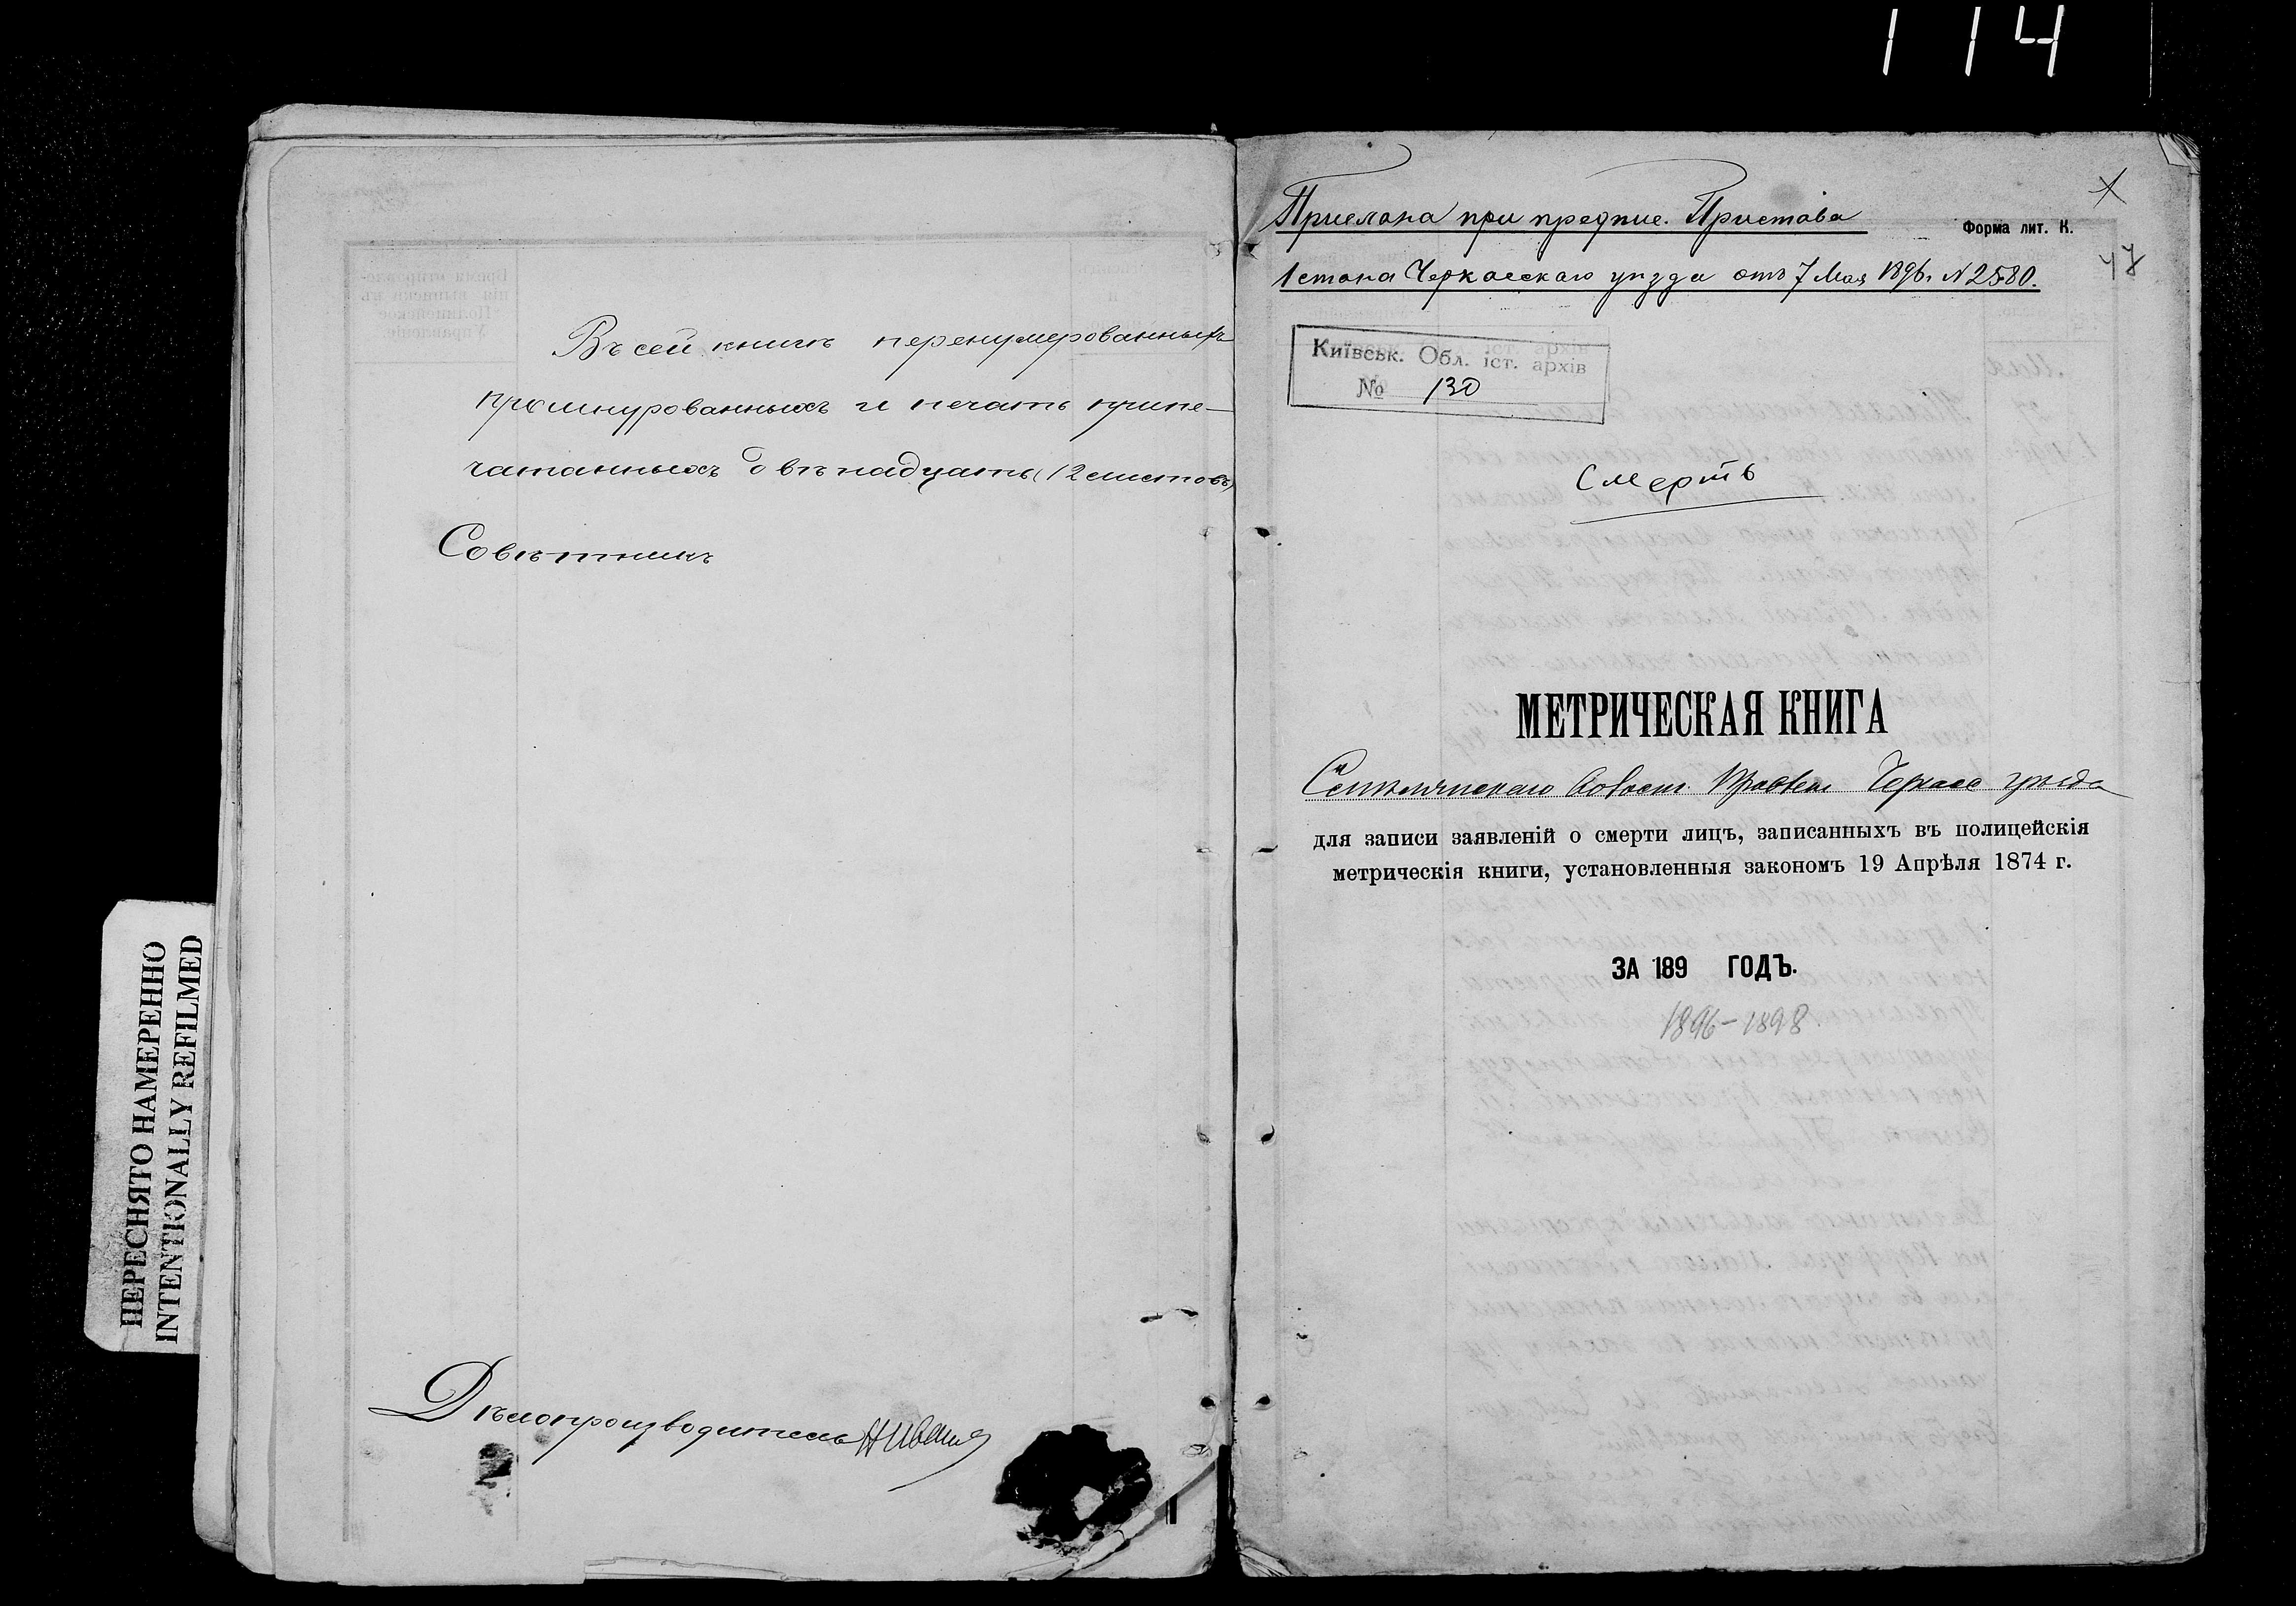 114
Въ сей книгѣ перенумерованныхъ
прошнурованныхъ и печатью припе-
чатанныхъ двѣнадцать (12 листовъ)
Совѣтникъ
Дѣлопроизводитель
ПЕРЕСНЯТО НАМЕРЕННО
INTENTIONALLY REFILMED
Прислана при предпис. Пристава
Форма лит. К.
1 стана Черкасскаго уѣзда отъ 7 Мая 1896 г. N 2580.
Київськ. Обл. іст. архів
№ 130
Смерть
МЕТРИЧЕСКАЯ КНИГА
Смѣлянскаго Волост. Правлен. Черкасс уѣзда
для записи заявленій о смерти лицъ, записанныхъ въ полицейскія
метрическія книги, установленныя закономъ 19 Апрѣля 1874 г.
ЗА 189 ГОДЪ.
1896-1898